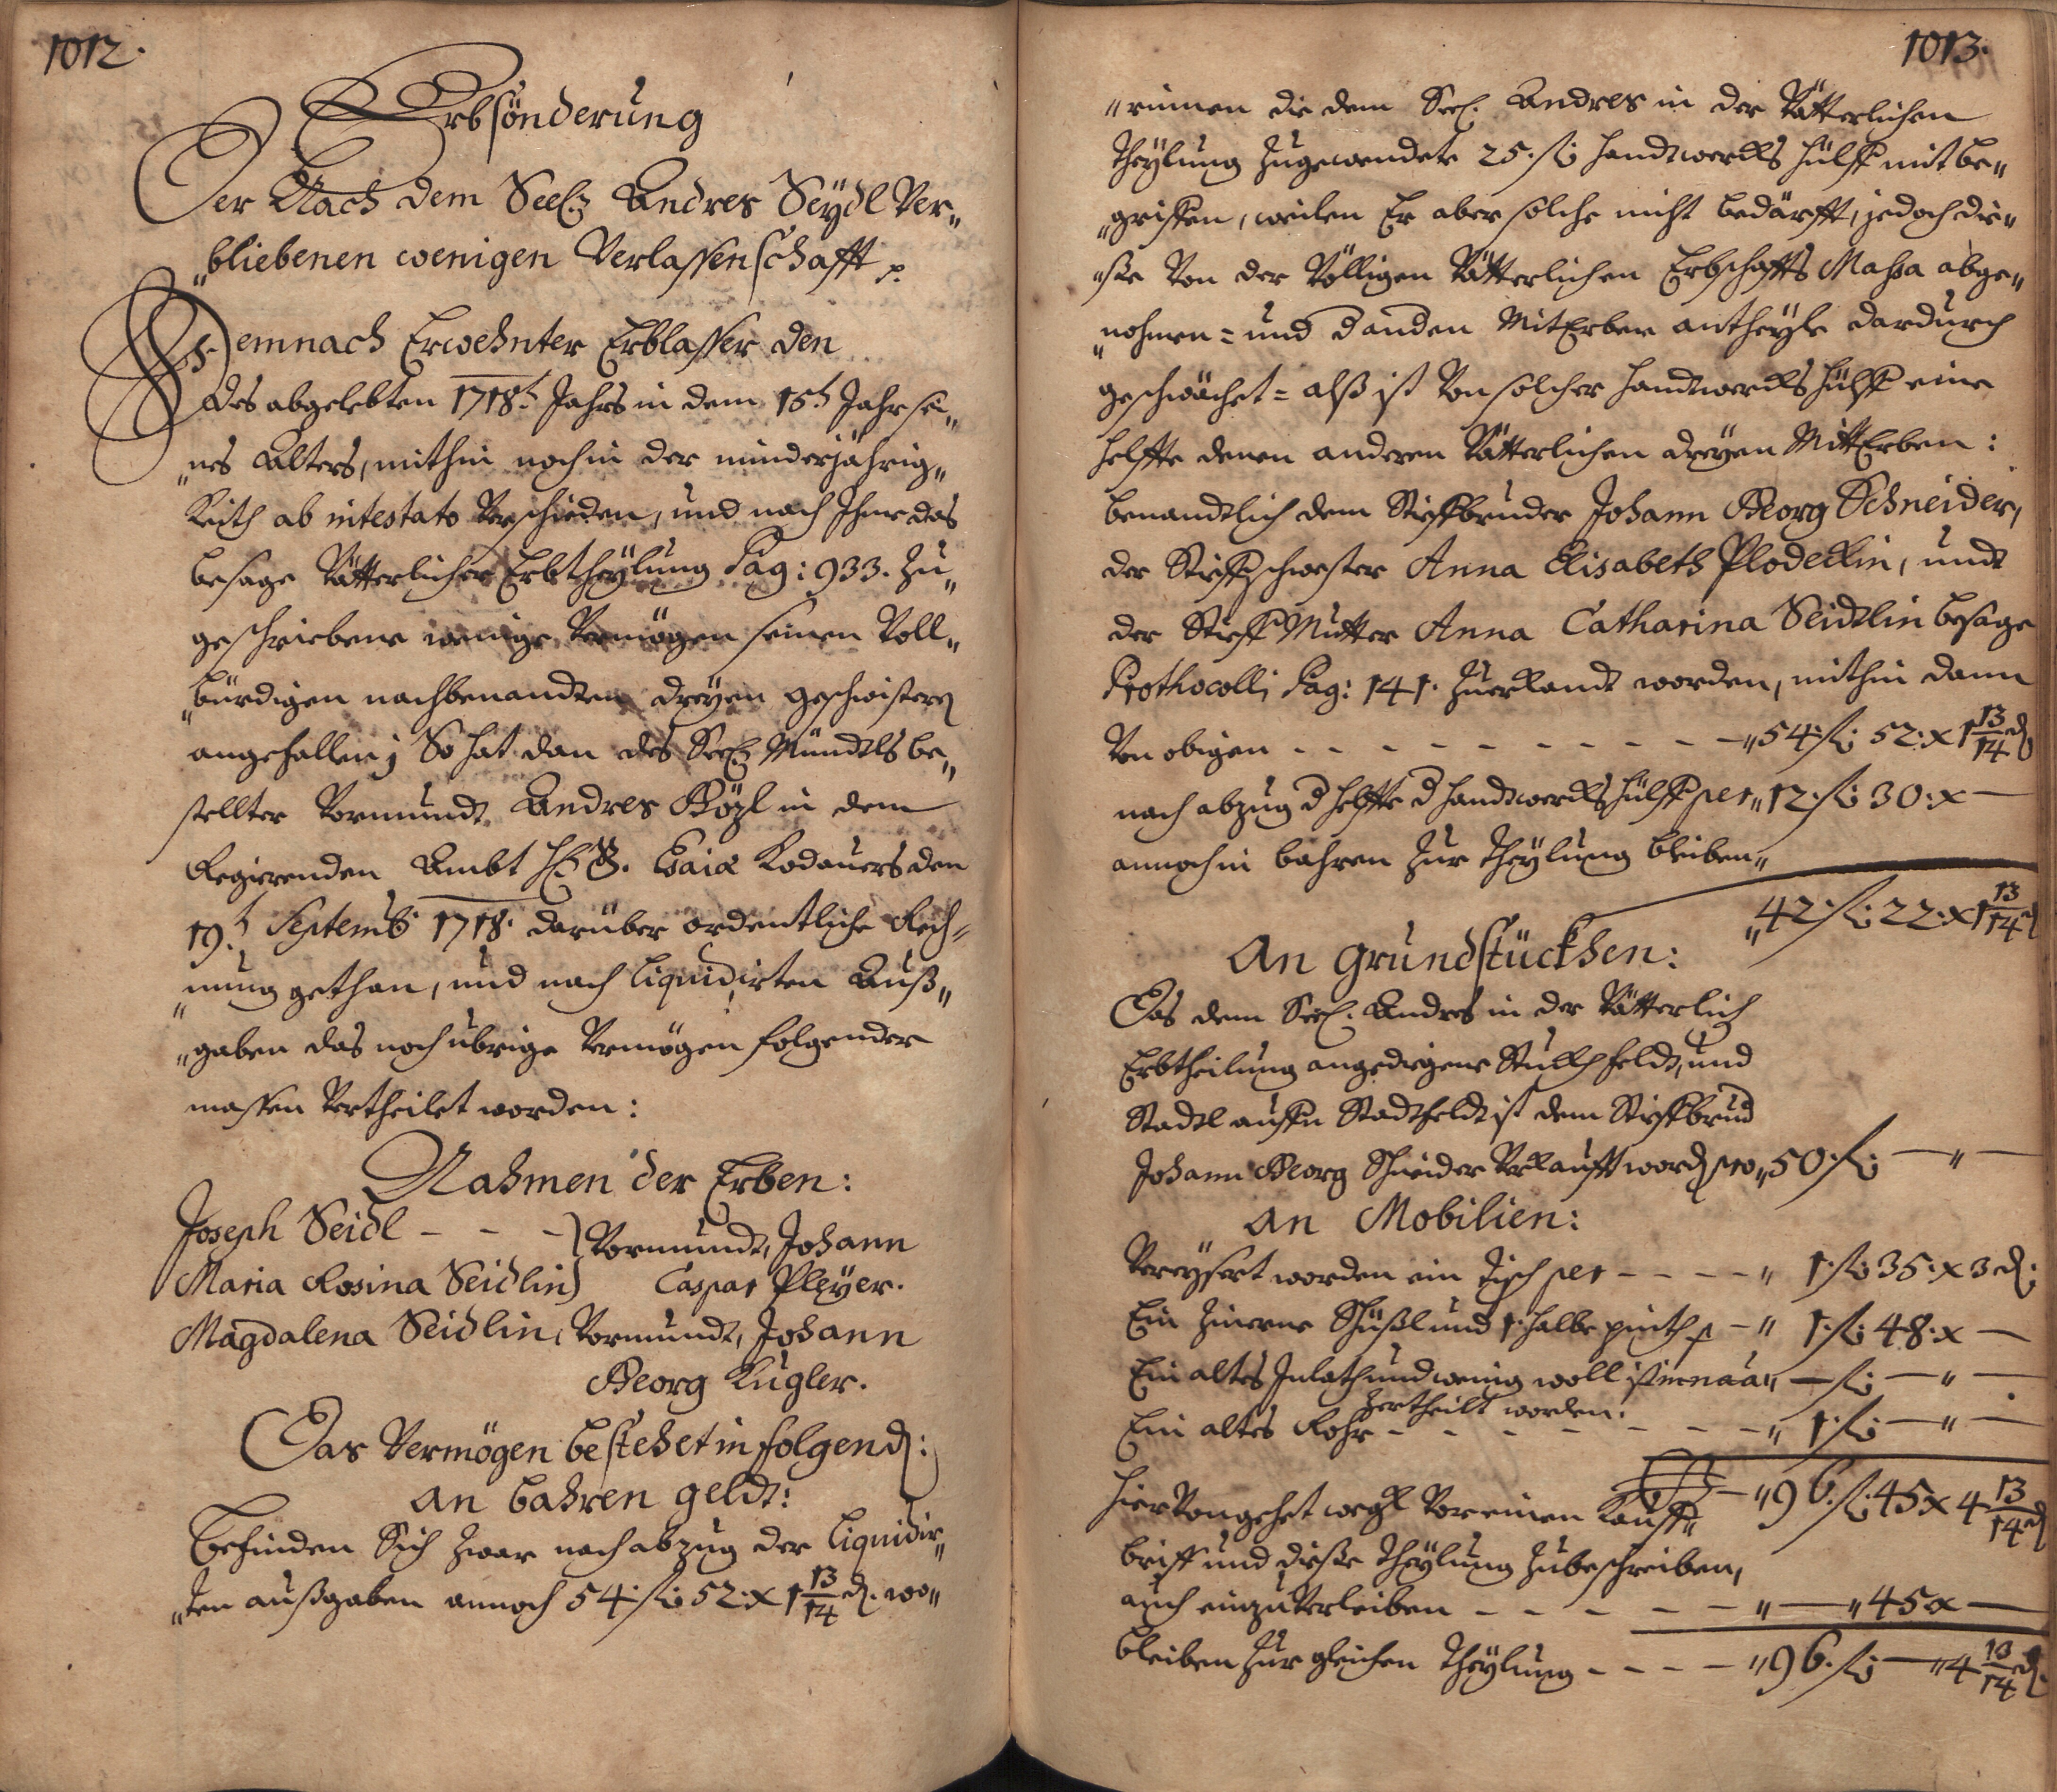 1012.
Erbsönderung
Der Nach dem Seel: Andres Seÿdl Ver„
„bliebenen wenigen Verlassenschafft p.
Demnach Erwehnter Erblasser den
des abgelebten 1718t. Jahrs in dem 15t Jahr sei„
„nes Alters, mithin noch in der minderjährig„
Keith ab intestato Verschieden, und nach Ihme das
besage Vätterlicher Erbtheÿlung Pag: 933. Zu„
geschriebene wenige Vermögen seinen Voll„
„bürdigen nachbenandten dreÿen geschwistern
angefallen; So hat dan des Seel: Mündtls be„
stellter Vormundt Andres Közl in dem
Regierenden Ambt H: Esaiæ Kodauers den
19.t Septemb: 1718. darüber ordentliche Rech=
„nung gethan, und nach liquidirten Auß„
„gaben das noch übrige Vermögen folgender
massen Vertheilet worden:
Nahmen der Erben:
Joseph Seidl - - -) Vormundt, Johann
Maria Rosina Seidlin) Caspar Pleÿer.
Magdalena Seidlin, Vormundt, Johann
Georg Kugler.
Das Vermögen bestehet in folgend:
An bahren geldt:
Befinden Sich zwar nach abzug der liquidir„
„ten außgaben annoch 54: fl: 52: x 1 13/14 d. wo„
1013.
„rinnen die dem Seel: Andres in der Vätterlichen
Theÿlung zugewendete 25. fl: handtwercks hülff mit be„
„griffen, weilen Er aber solche nicht bedärfft, jedoch die„
„ße Von der Völligen Vätterlichen Erbschaffts Massa abge„
„nohmen = und d anden MitErben antheÿle dardurch
geschwächet = alß ist Von solcher handtwercks hülff eine
helffte denen anderen Vätterlichen dreÿen MittErben:
benandtlich dem Stieffbruder Johann Georg Schneider,
der Stieffschwester Anna Elisabeth Plodeckin, undt
der Stieff Mutter Anna Catharina Seidtlin besage
Prothocolli Pag: 141. Zuerkandt worden, mithin dann
Von obigen - - - - - - - - - - „54: fl: 52: x 1 13/14 d
nach abzug d helffte d handtwercks hülff per „12: fl: 30: x —
annoch in bahren zur Theÿlung bleiben„
„42: fl: 22: x 1 13/14 d
An grundstückhen:
Das dem Seel: Andres in der Vätterlich
Erbtheilung angediegene Stuckh feldt, und
Stadl auffn Stadtfeldt ist dem Stieffbrud
Johann Georg Schneider Verkaufft word pro „50: fl: — „ —
An Mobilien:
Vereÿsert worden ein Tisch per - - - - „ 1: fl: 35: x 3 d:
Ein Zinerne Schüßl und 1: halbe pinth p - „ 1: fl: 48: x —
Ein altes Inlath und wenig woll ist in naa „ — fl: — „ —
zertheilt worden.
Ein altes Rohr - - - - - - - - „ 1: fl: — „ —
„96: fl: 45 x 4 13/14 d
Hier Von gehet wegkh Vor einen Kauff„
brieff und diese Theÿlung Zubeschreiben,
auch einzuverleiben - - - - - - „ — „ 45 x —
bleiben zur gleichen Theÿlung - - - - „96: fl: — „ 4 13/14 d.